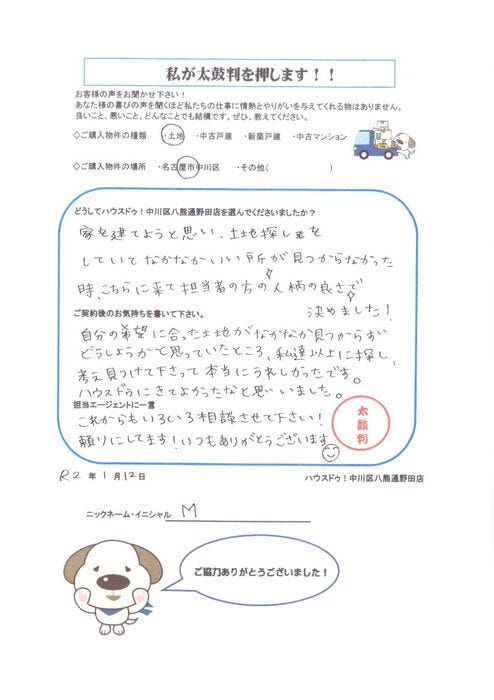 私が太鼓判を押します！！
お客様の声をお聞かせ下さい！
あなた様の喜びの声を聞くほど私たちの仕事に情熱とやりがいを与えてくれる物はありません。
良いこと、悪いこと、どんなことでも結構です。ぜひ、教えてください。
◇ご購入物件の種類 ・土地 ・中古戸建 ・新築戸建 ・中古マンション
◇ご購入物件の場所 ・名古屋市中川区 ・その他( )
どうしてハウスドゥ！中川区八熊通野田店を選んでくださいましたか？
家を建てようと思い、土地探しを
していてなかなかいい所が見つからなかった
時、こちらに来て担当者の方の人柄の良さで
決めました！
ご契約後のお気持ちを書いて下さい。
自分の希望に合った土地がなかなか見つからず
どうしようかと思っていたところ、私達以上に探し、
考え見つけて下さって本当にうれしかったです。
ハウスドゥにきてよかったなと思いました。
担当エージェントに一言
これからもいろいろ相談させて下さい！
頼りにしてます！いつもありがとうございます
太鼓判
R2 年 1 月 12 日 ハウスドゥ！中川区八熊通野田店
ニックネーム・イニシャル M
ご協力ありがとうございました！